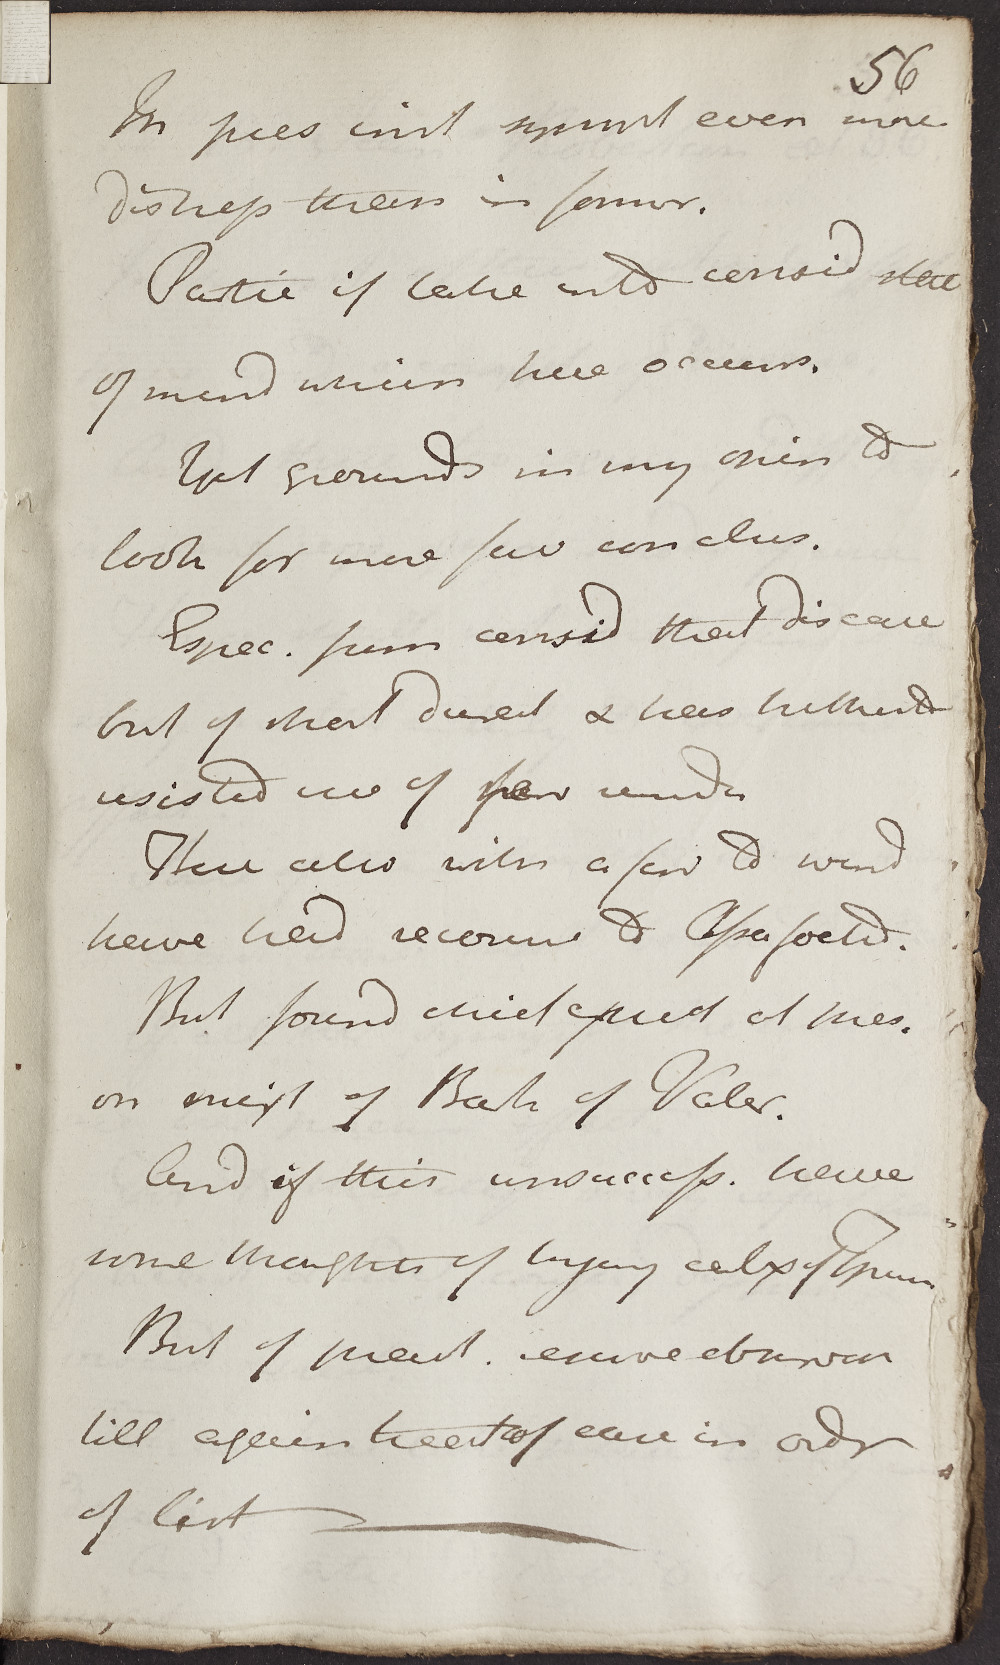 56
In pres inst sympt even more
distress than in former.
Partic if take into consid state
of mind which here occurs.
Yet grounds in my opin to
look for more fav conclus.
Espec. from consid that disease
but of short durat & has hitherto
resisted use of few remds
There also with a few to wind
have had recourse to Assafoetid.
But found chief expect at pres.
on mixt of Bark of Valer.
And if this unsuccess. have
some thoughts of trying calx of
But of preact. reserve observon
till again treat of case in order
of list